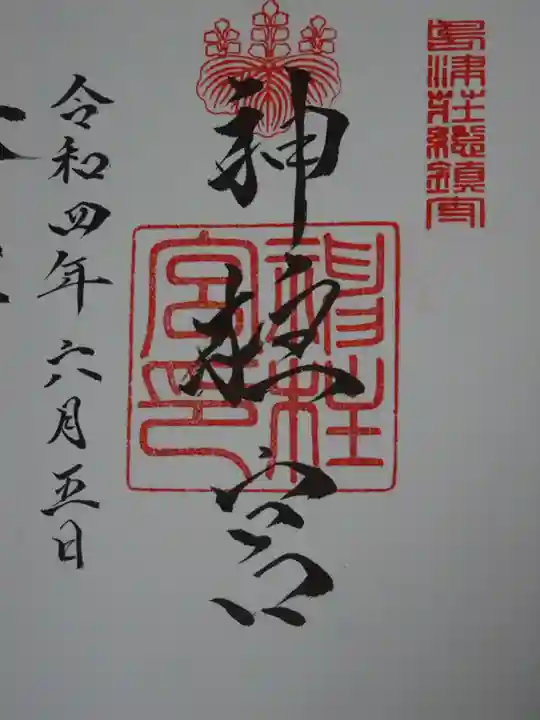 島津荘総鎮守
神柱宮
神柱宮印
令和四年六月五日